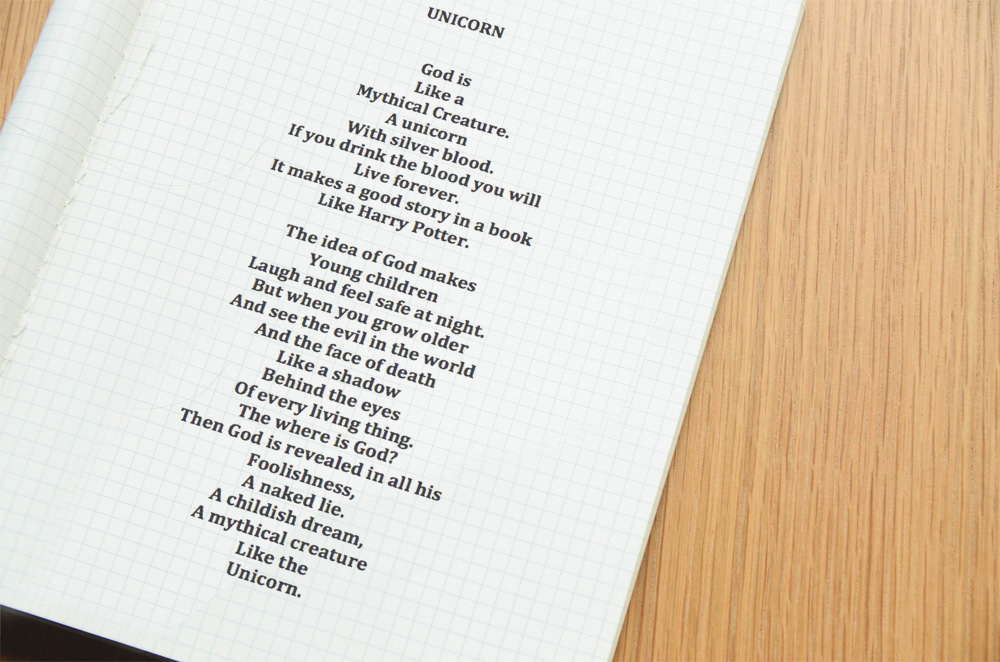 UNICORN
God is
Like a
Mythical Creature.
A unicorn
With silver blood.
If you drink the blood you will
Live forever.
It makes a good story in a book
Like Harry Potter.
The idea of God makes
Young children
Laugh and feel safe at night.
But when you grow older
And see the evil in the world
And the face of death
Like a shadow
Behind the eyes
Of every living thing.
The where is God?
Then God is revealed in all his
Foolishness,
A naked lie.
A childish dream,
A mythical creature
Like the
Unicorn.